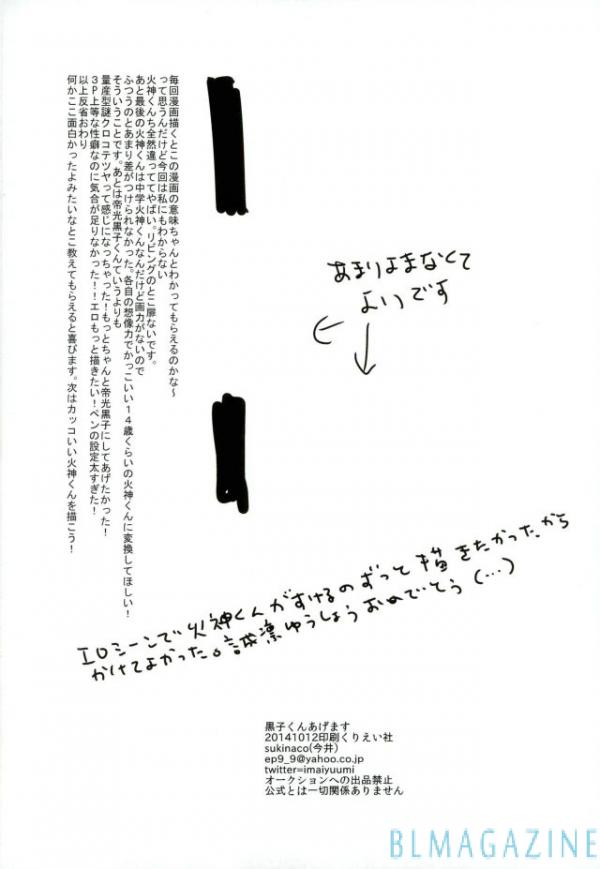 毎回漫画描くとこの漫画の意味ちゃんとわかってもらえるのかな～
って思うんだけど今回は私にもわからない
火神くんち全然違っててやばい。リビングのとこ扉ないです。
あと最後の火神くんは中学火神くんなんだけど画力がないので
ふつうのとあまり差がつけられなかった。各自の想像力でかっこいい１４歳くらいの火神くんに変換してほしい！
そういうことです。あとは帝光黒子くんていうよりも
量産型謎クロコテツヤって感じになっちゃった！もっとちゃんと帝光黒子にしてあげたかった！
３Ｐ上等な性癖なのに気合が足りなかった！！エロもっと描きたい！ペンの設定太すぎた！
以上反省おわり
何かここ面白かったよみたいなとこ教えてもらえると喜びます。次はカッコいい火神くんを描こう！
あまりよまなくて
よいです
エロシーンで火神くんがすけるのずって描きたかったから
かけてよかった。誠凛ゆうしょうおめでとう(…)
黒子くんあげます
20141012印刷くりえい社
sukinaco(今井)
ep9_9@yahoo.co.jp
twitter=imaiyuumi
オークションへの出品禁止
公式とは一切関係ありません
BLMAGAZINE